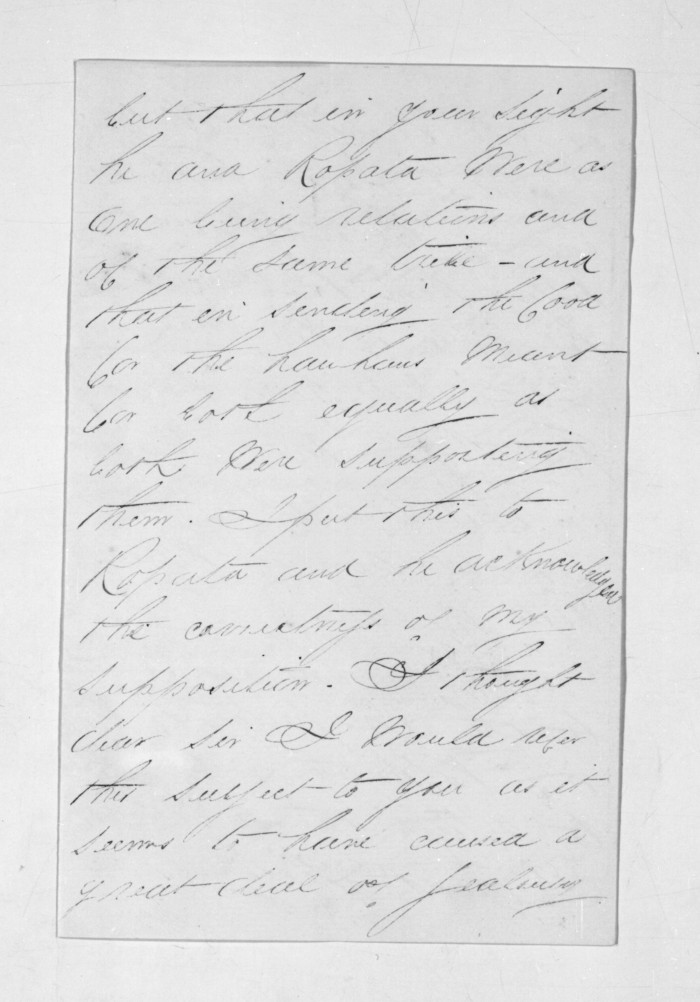 but that in your sight
he and Ropata were as
one being relations and
of the same tribe - and
that in sending the food
for the hauhaus meant
for both equally as
both were supporting
them. I put this to
Ropata and he acknowledged
the correctness of my
supposition. I thought
dear Sir I would refer
this subject to you as it
seems to have caused a
great deal of Jealousy